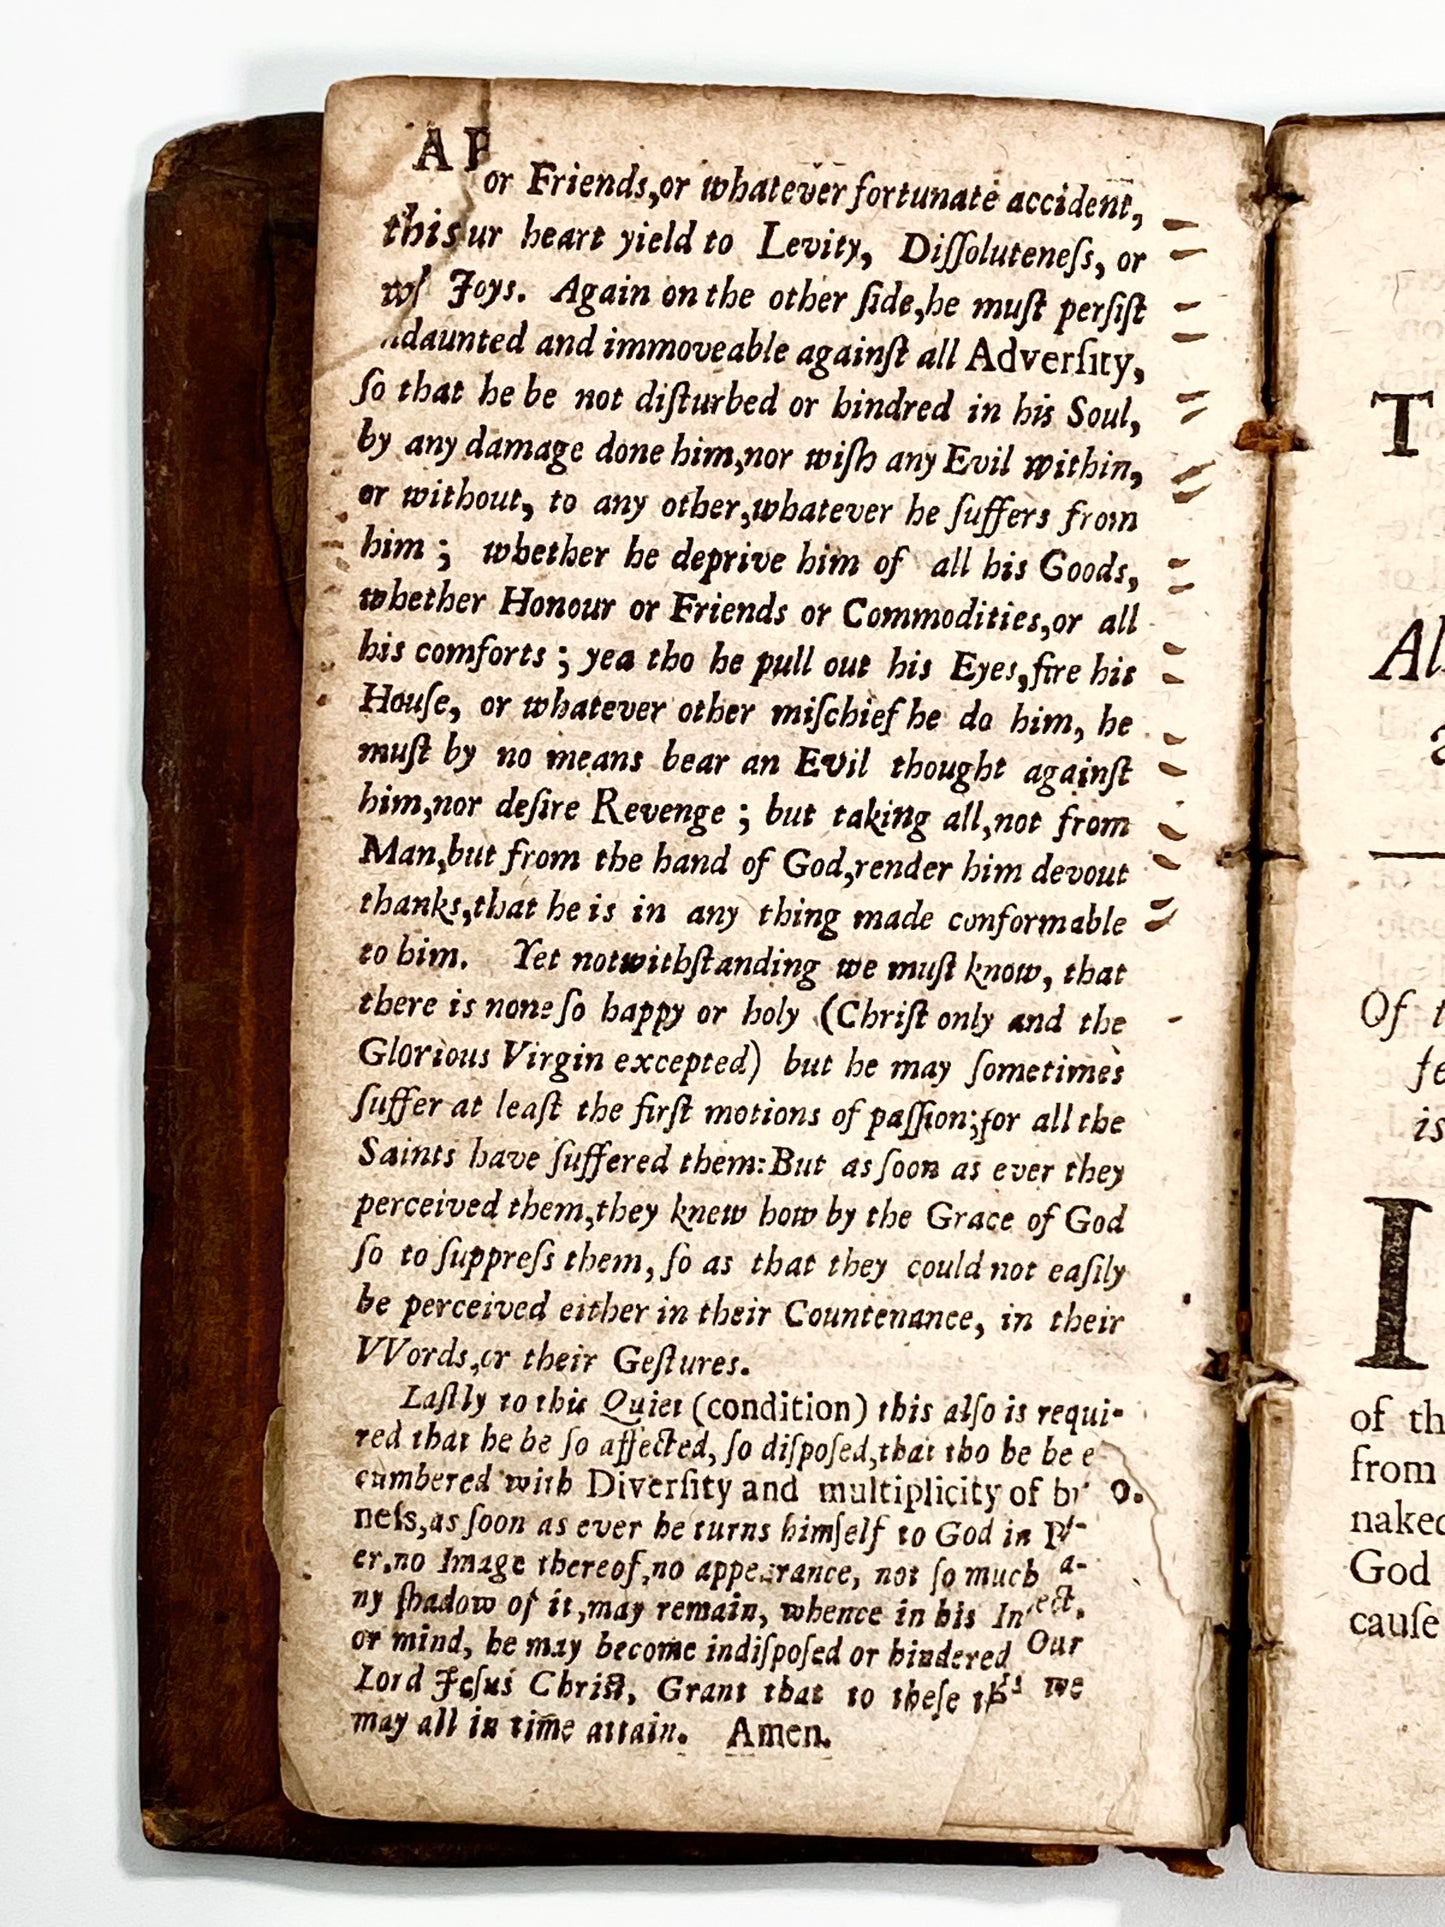 A P
or Friends,or whatever fortunate accident,
this ur heart yield to Levity, Diſſoluteneſs, or
Joys. Again on the other ſide,he muſt perſiſt
ndaunted and immoveable againſt all Adverſity,
ſo that he be not diſturbed or hindred in his Soul,
by any damage done him,nor wiſh any Evil within,
or without, to any other,whatever he ſuffers from
him ; whether he deprive him of all his Goods,
whether Honour or Friends or Commodities,or all
his comforts ; yea tho he pull out his Eyes,fire his
Houſe, or whatever other miſchief he do him, he
muſt by no means bear an Evil thought againſt
him,nor deſire Revenge ; but taking all,not from
Man,but from the hand of God,render him devout
thanks,that he is in any thing made conformable
to him. Yet notwithſtanding we muſt know, that
there is none ſo happy or holy (Chriſt only and the
Glorious Virgin excepted) but he may ſometimes
ſuffer at leaſt the firſt motions of paſſion;for all the
Saints have ſuffered them:But as ſoon as ever they
perceived them,they knew how by the Grace of God
ſo to ſuppreſs them, ſo as that they could not eaſily
be perceived either in their Countenance, in their
VVords,or their Geſtures.
Laſtly to this Quiet (condition) this alſo is requi-
red that he be ſo affected, ſo diſpoſed,that tho he be e
cumbered with Diverſity and multiplicity of b o.
neſs,as ſoon as ever he turns himſelf to God in P
er,no Image thereof,no appearance, not ſo much a-
ny ſhadow of it,may remain, whence in his In ect,
or mind, he may become indiſpoſed or hindered Our
Lord Jeſus Chriſt, Grant that to theſe we
may all in time attain. Amen.
T
Al
a
Of t
fe
is
I
of th
from
naked
God
cauſe